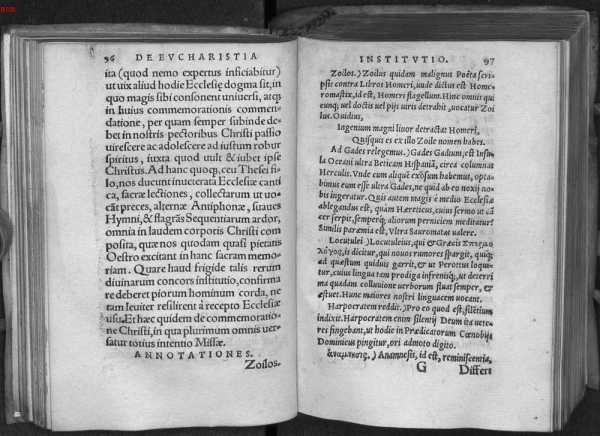 96 DE EVCHARISTIA
ita (quod nemo expertus inficiabitur)
ut uix aliud hodie Ecclesię dogma sit, in
quo magis sibi consonent uniuersi, atq;
in huius commemorationis commen-
datione, per quam semper subinde de-
bet in nostris pectoribus Christi passio
uirescere ac adolescere ad iustum robur
spiritus, iuxta quod uult & iubet ipse
Christus. Ad hanc quoq;, ceu Thesei fi-
lo, nos ducunt inueterata Ecclesiæ canti
ca, sacræ lectiones, collectarum ut uo-
cāt preces, alternæ Antiphonæ, suaues
Hymni, & flagrās Sequentiarum ardor,
omnia in laudem corporis Christi com
posita, quæ nos quodam quasi pietatis
Oestro excitant in hanc sacram memo-
riam. Quare haud frigide talis rerum
diuinarum concors institutio, confirma
re deberet piorum hominum corda, ne
tam leuiter resilirent à recepto Ecclesiæ
usu. Et hæc quidem de commemoratio-
ne Christi, in qua plurimum omnis uer-
satur totius intentio Missæ.
ANNOTATIONES.
Zoilos.
INSTITVTIO. 97
Zoilos.) Zoilus quidam malignus Poëta scri-
psit contra Libros Homeri, unde dictus est Home-
romastix, id est, Homeri flagellum. Hinc omnis qui
cunq; uel doctis uel pijs uiris detrahit, uocatur Zoi
lus. Ouidius,
Ingenium magni liuor detractat Homeri,
Quisquis es ex illo Zoile nomen habes.
Ad Gades relegemus.) Gades Gadium, est Insu-
la Oceani ultra Beticam Hispaniā, circa columnas
Herculis. Vnde cum aliquē exosum habemus, opta-
bimus eum esse ultra Gades, ne quid ab eo noxij no-
bis ingeratur. Quis autem magis è medio Ecclesiæ
ablegandus est, quàm Hæreticus, cuius sermo ut cā
cer serpit, semperq; aliorum perniciem meditatur?
Similis parœmia est, Vltra Sauromatas ualere.
Locutulei.) Locutuleius, qui & Græcis Σπερμο
λόγος, is dicitur, qui nouos rumores spargit, quiq;
ad quæstum quiduis garrit, & ut Perottus loqui-
tur, cuius lingua tam prodiga infreniq;, ut deterri
ma quadam colluuione uerborum fluat semper, &
æstuet. Hunc maiores nostri linguacem uocant.
Harpocratem reddit.) Pro eo quod est, silētium
indixit. Harpocratem enim silentij Deum ita uete-
res fingebant, ut hodie in Prædicatorum Cœnobijs
Dominicus pingitur, ori admoto digito.
ἀνάμνησις.) Anamnesis, id est, reminiscentia,
G Differt